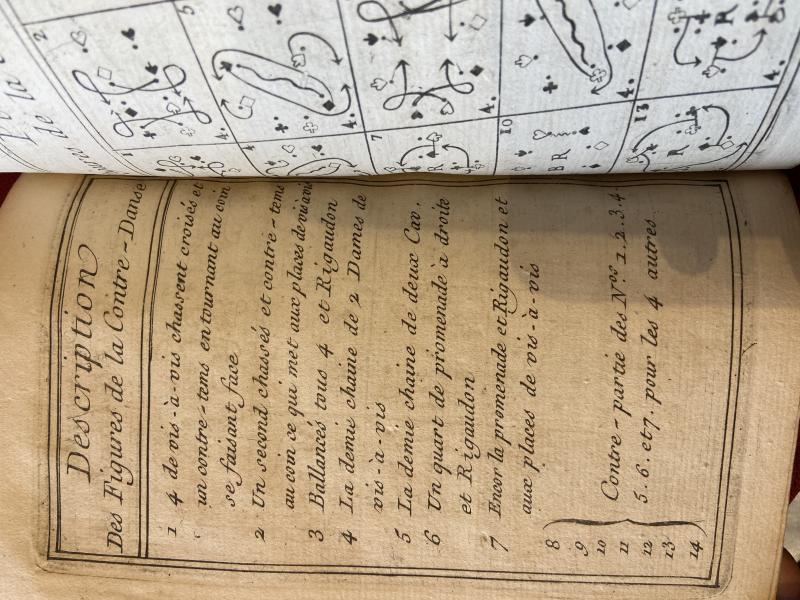 Description
Des Figures de la Contre-Danse
1 4 de vis-à-vis chassent croisés et
un contre-tems en tournant au coin
se faisant face
2 Un second chassés et contre-tems
au coin ce qui met aux places de vis à vis
3 Ballancés tous 4 et Rigaudon
4 La demie chaine de 2 Dames de
vis-à-vis
5 La demie chaine de deux Cav.
6 Un quart de promenade à droite
et Rigaudon
7 Encor la promenade et Rigaudon et
aux places de vis-à-vis
8
9
10
11
12
13
14
Contre-partie des Nos 1.2.3.4.
5.6. et 7. pour les 4 autres.
de la
2
5
4.
4.
7
4.
10
B R
4.
13
R
R
4.